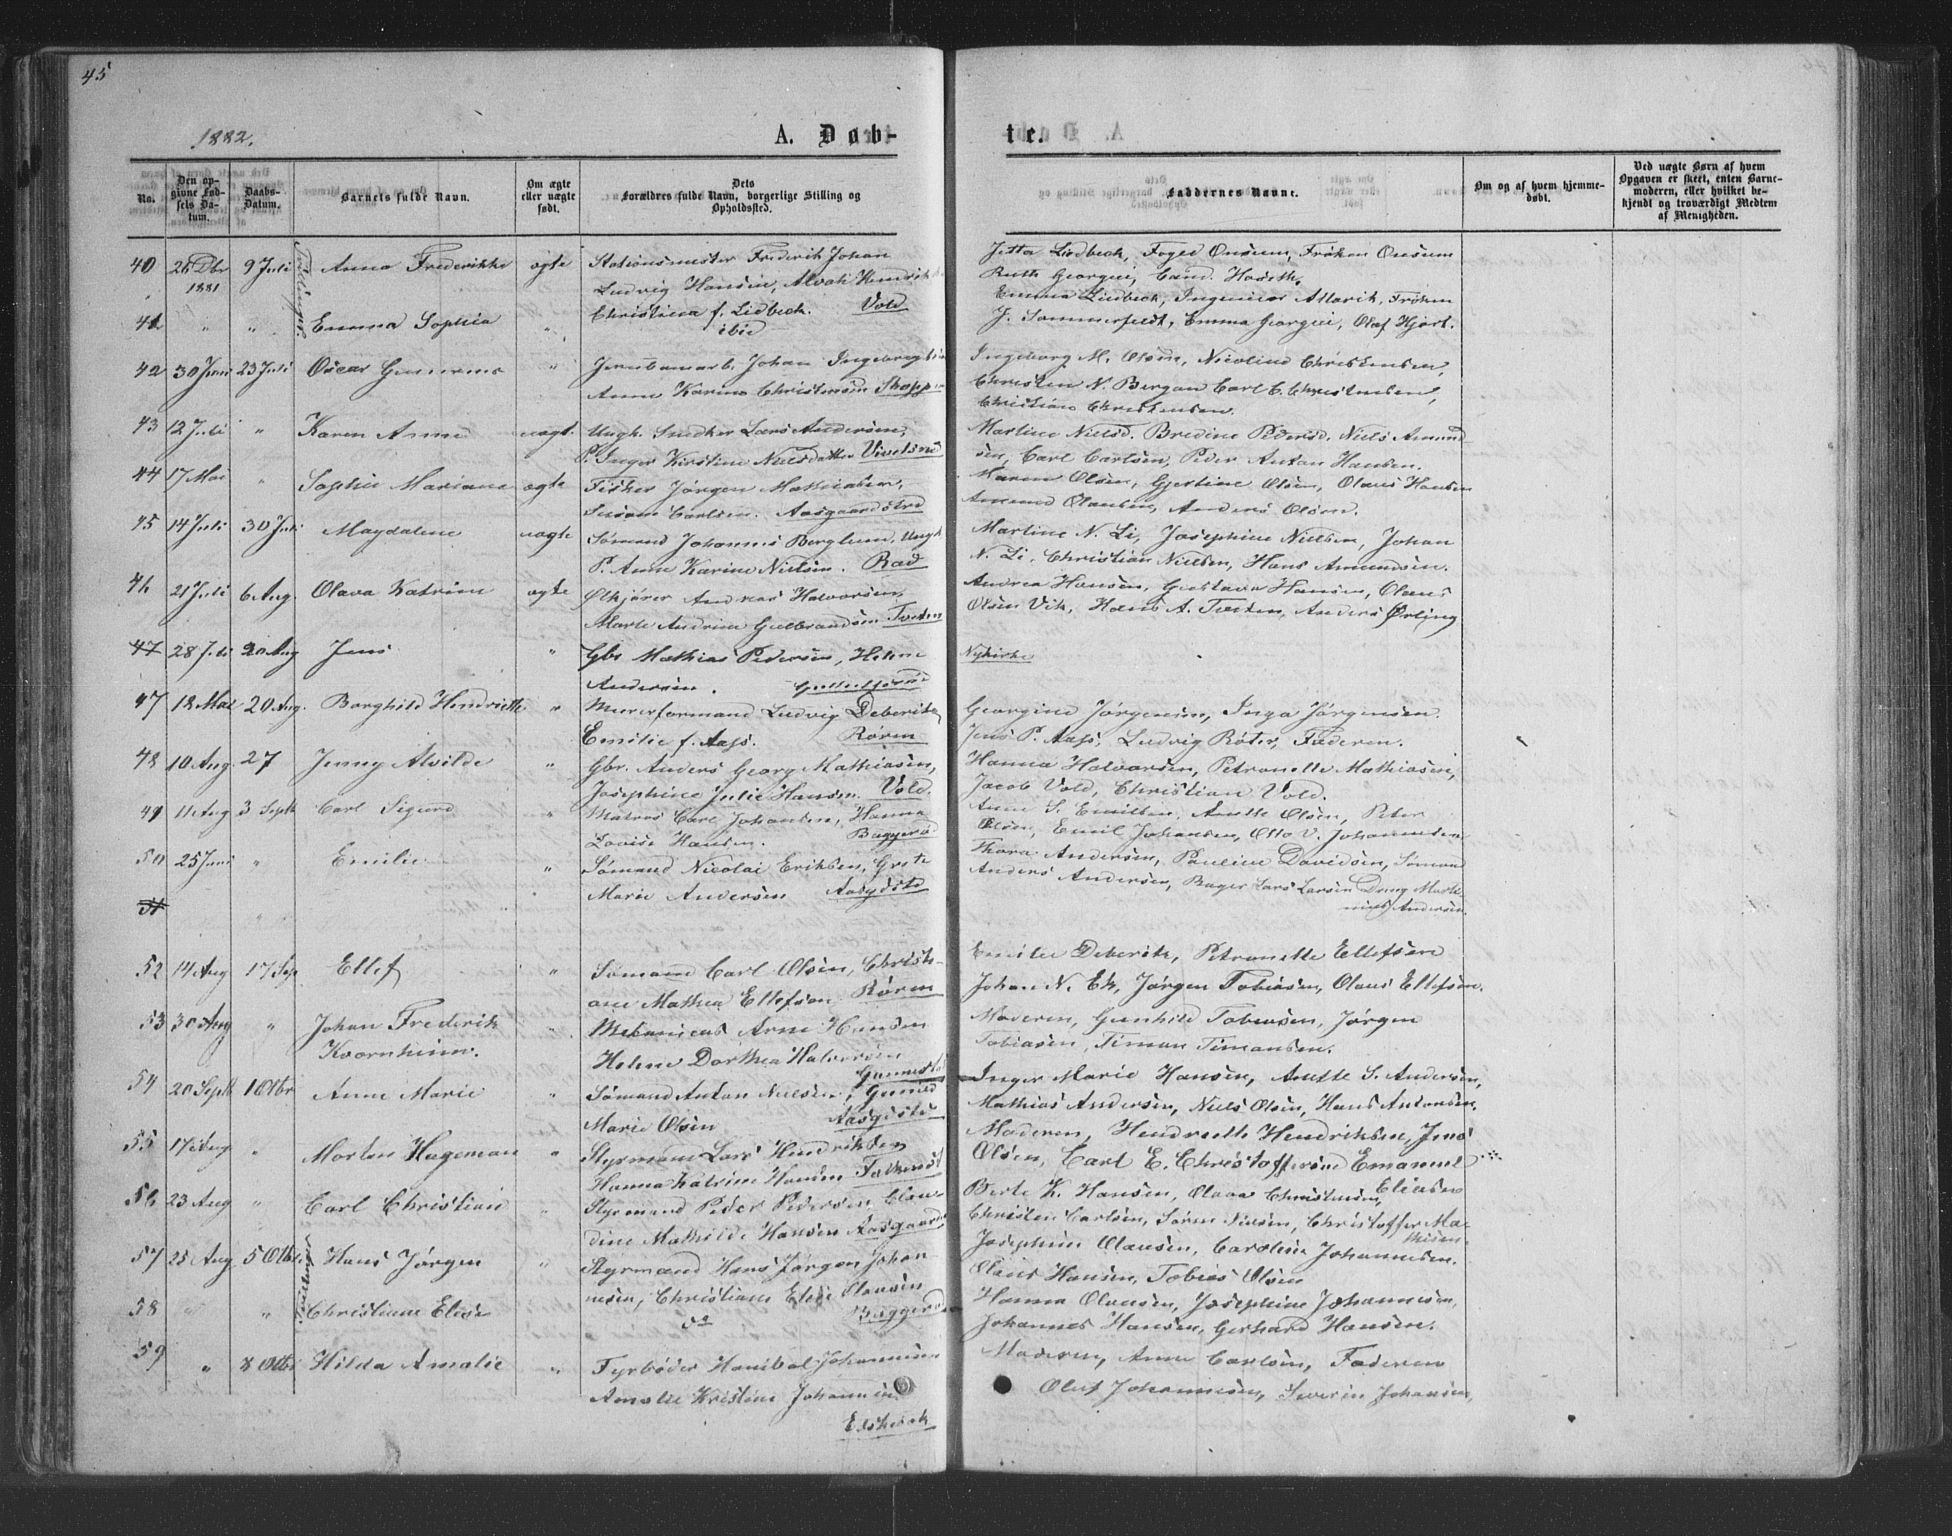 45
1882.
A. Døb-
te.
No.
Den op-
givne Fød-
sels Da-
tum.
Daabs-
Datum.
Barnets fulde Navn.
Om ægte
eller uægte
født.
Dets
Forældres fulde Navn, borgerlige Stilling og
Opholdssted.
Faddernes Navne.
Om og af hvem hjemme-
døbt.
Ved uægte Børn af hvem
Opgaven er skeet, enten Barne-
moderen, eller hvilket be-
kjendt og troværdigt Medlem
af Menigheden.
40 26 Dbr 9 Juli Anna Frederikke ægte Stationsmester Frederik Johan
1881 Ludvig Hansen, Alvah Hendrik
Jetta Lidbeck, Foged Onsum, Frøken Onsum
Ruth Georgii, Cand. Harseth
41 " " Emma Sophia " Christina f. Lidbeck. Vold
ibid
Emma Lidbeck, Ingeniør Allarik, Frøken
J. Sommerfeldt, Emma Georgii, Olaf Hjort.
42 30 Juni 23 Juli Oscar "
Johan
Anne Karine Christensen
Ingeborg M. Olsen, Nicoline Christensen,
Christen N. Bergan Carl E. Christensen,
Christiane Christensen.
43 12 Juli " Karen Anne uægt. Ungk. Snedker Lars Andersen,
P. Inger Kirstine Nielsdatter
Martine Nielsd. Bredine Pedersd. Niels Amund-
sen, Carl Carlsen, Peder Anton Hansen.
44 17 Mai " Sophie Mariane ægte Fisker Jørgen Mathiesen,
Susan Carlsen. Aasgaardstrd
Maren Olsen, Gjertine Olsen, Olaus Hansen
Amund Olausen, Anders Olsen.
45 14 Juli 30 Juli Magdalene uægte Sømand Johannes Berglund, Ungk
P. Anne Karine Nielsen. Rød
Martine N. Li, Josephine Nielsen, Johan
N. Li, Christian Nielsen, Hans Amundsen.
46 21 Juli 6 Aug. Olava Katrine ægte Ølkjører Andreas Halvorsen,
Marte Andrine Gulbrandsen Tveten
Andrea Hansen, Gustava Hansen, Olaus
Olsen Vik, Hans A. Tveten, Anders Ørling
47 28 Juli 20 Aug Jens " Gbr Mathias Pedersen, Helene
Andersen.
Nykirke
47 18 Mai 20 Aug. Borghild Hendriette " Murerformand Ludvig Deberitz
Emilie f. Aass. Røren
Georgine Jørgensen, Inga Jørgensen.
Jens P. Aass, Ludvig Røter, Faderen.
48 10 Aug. 27 Jenny Alvilde " Gbr. Anders Georg Mathiasen,
Josephine Julie Hansen. Vold.
Hanna Halvorsen, Petronelle Mathiasen,
Jacob Vold, Christian Vold.
49 11 Aug 3 Septb Carl Sigurd " Matros Carl Johansen, Hanna
Lovise Hansen. Baggerød
Anne S. Emilsen, Anette Olsen, Peter
Olsen, Emil Johansen, Otto V. Johannessen
50 25 Juni " Emilie " Sømand Nicolai Eriksen, Grete
Marie Andersen Aasgdstd
Thora Andersen, Pauline Davidsen, Sømand
Anders Andersen, Bager Lars Larsen Dreng Marti-
nius Andersen.
51
52 14 Aug 17 Sep Ellef " Sømand Carl Olsen, Christi-
ane Mathea Ellefsen Røren
Emilie Deberitz, Petronelle Ellefsen
Johan N. Ek, Jørgen Tobiasen, Olaus Ellefsen.
53 30 Aug " Johan Frederik
Kvernheim. " Mekanicus Arne Hansen
Helene Dorthea Halvorsen
Moderen, Gunhild Tobiasen, Jørgen
Tobiasen, Timan Timansen.
54 20 Septb 1 Otbr Anne Marie " Sømand Anton Nielsen, Gunild
Marie Olsen Aasgdstd
Inger Marie Hansen, Anette S. Andersen,
Mathias Andersen, Niels Olsen, Hans Antonsen.
55 17 Aug " Morten Hageman " Styrmann Lars Hendriksen
Hanna Katrine Hansen
Moderen, Hendrette Hendriksen, Jens
Olsen, Carl E. Christoffersen Emanuel
Eliasen
56 23 Aug " Carl Christian " Styrmand Peder Pedersen, Clau-
dine Mathilde Hansen Aasgaards
Berte K. Hansen, Olava Christensen,
Christen Carlsen, Søren Nielsen, Christoffer Ma-
thisen.
57 25 Aug 5 Otbr. Hans Jørgen " Styrmand Hans Jørgen Johan-
nesen, Christiane Elise Olausen
Josephine Olausen, Caroline Johannesen.
Olaus Hansen, Tobias Olsen
58 " " Christiane Elise
Hanna Olausen, Josephine Johannesen,
Johannes Hansen, Gerhard Hansen.
59 " 8 Otbr Hilda Amalie " Fyrbøder Hanibal Johannesen
Amalie Kristine Johannesen
Moderen, Anne Carlsen, Faderen
Oluf Johannesen, Severin Johansen,